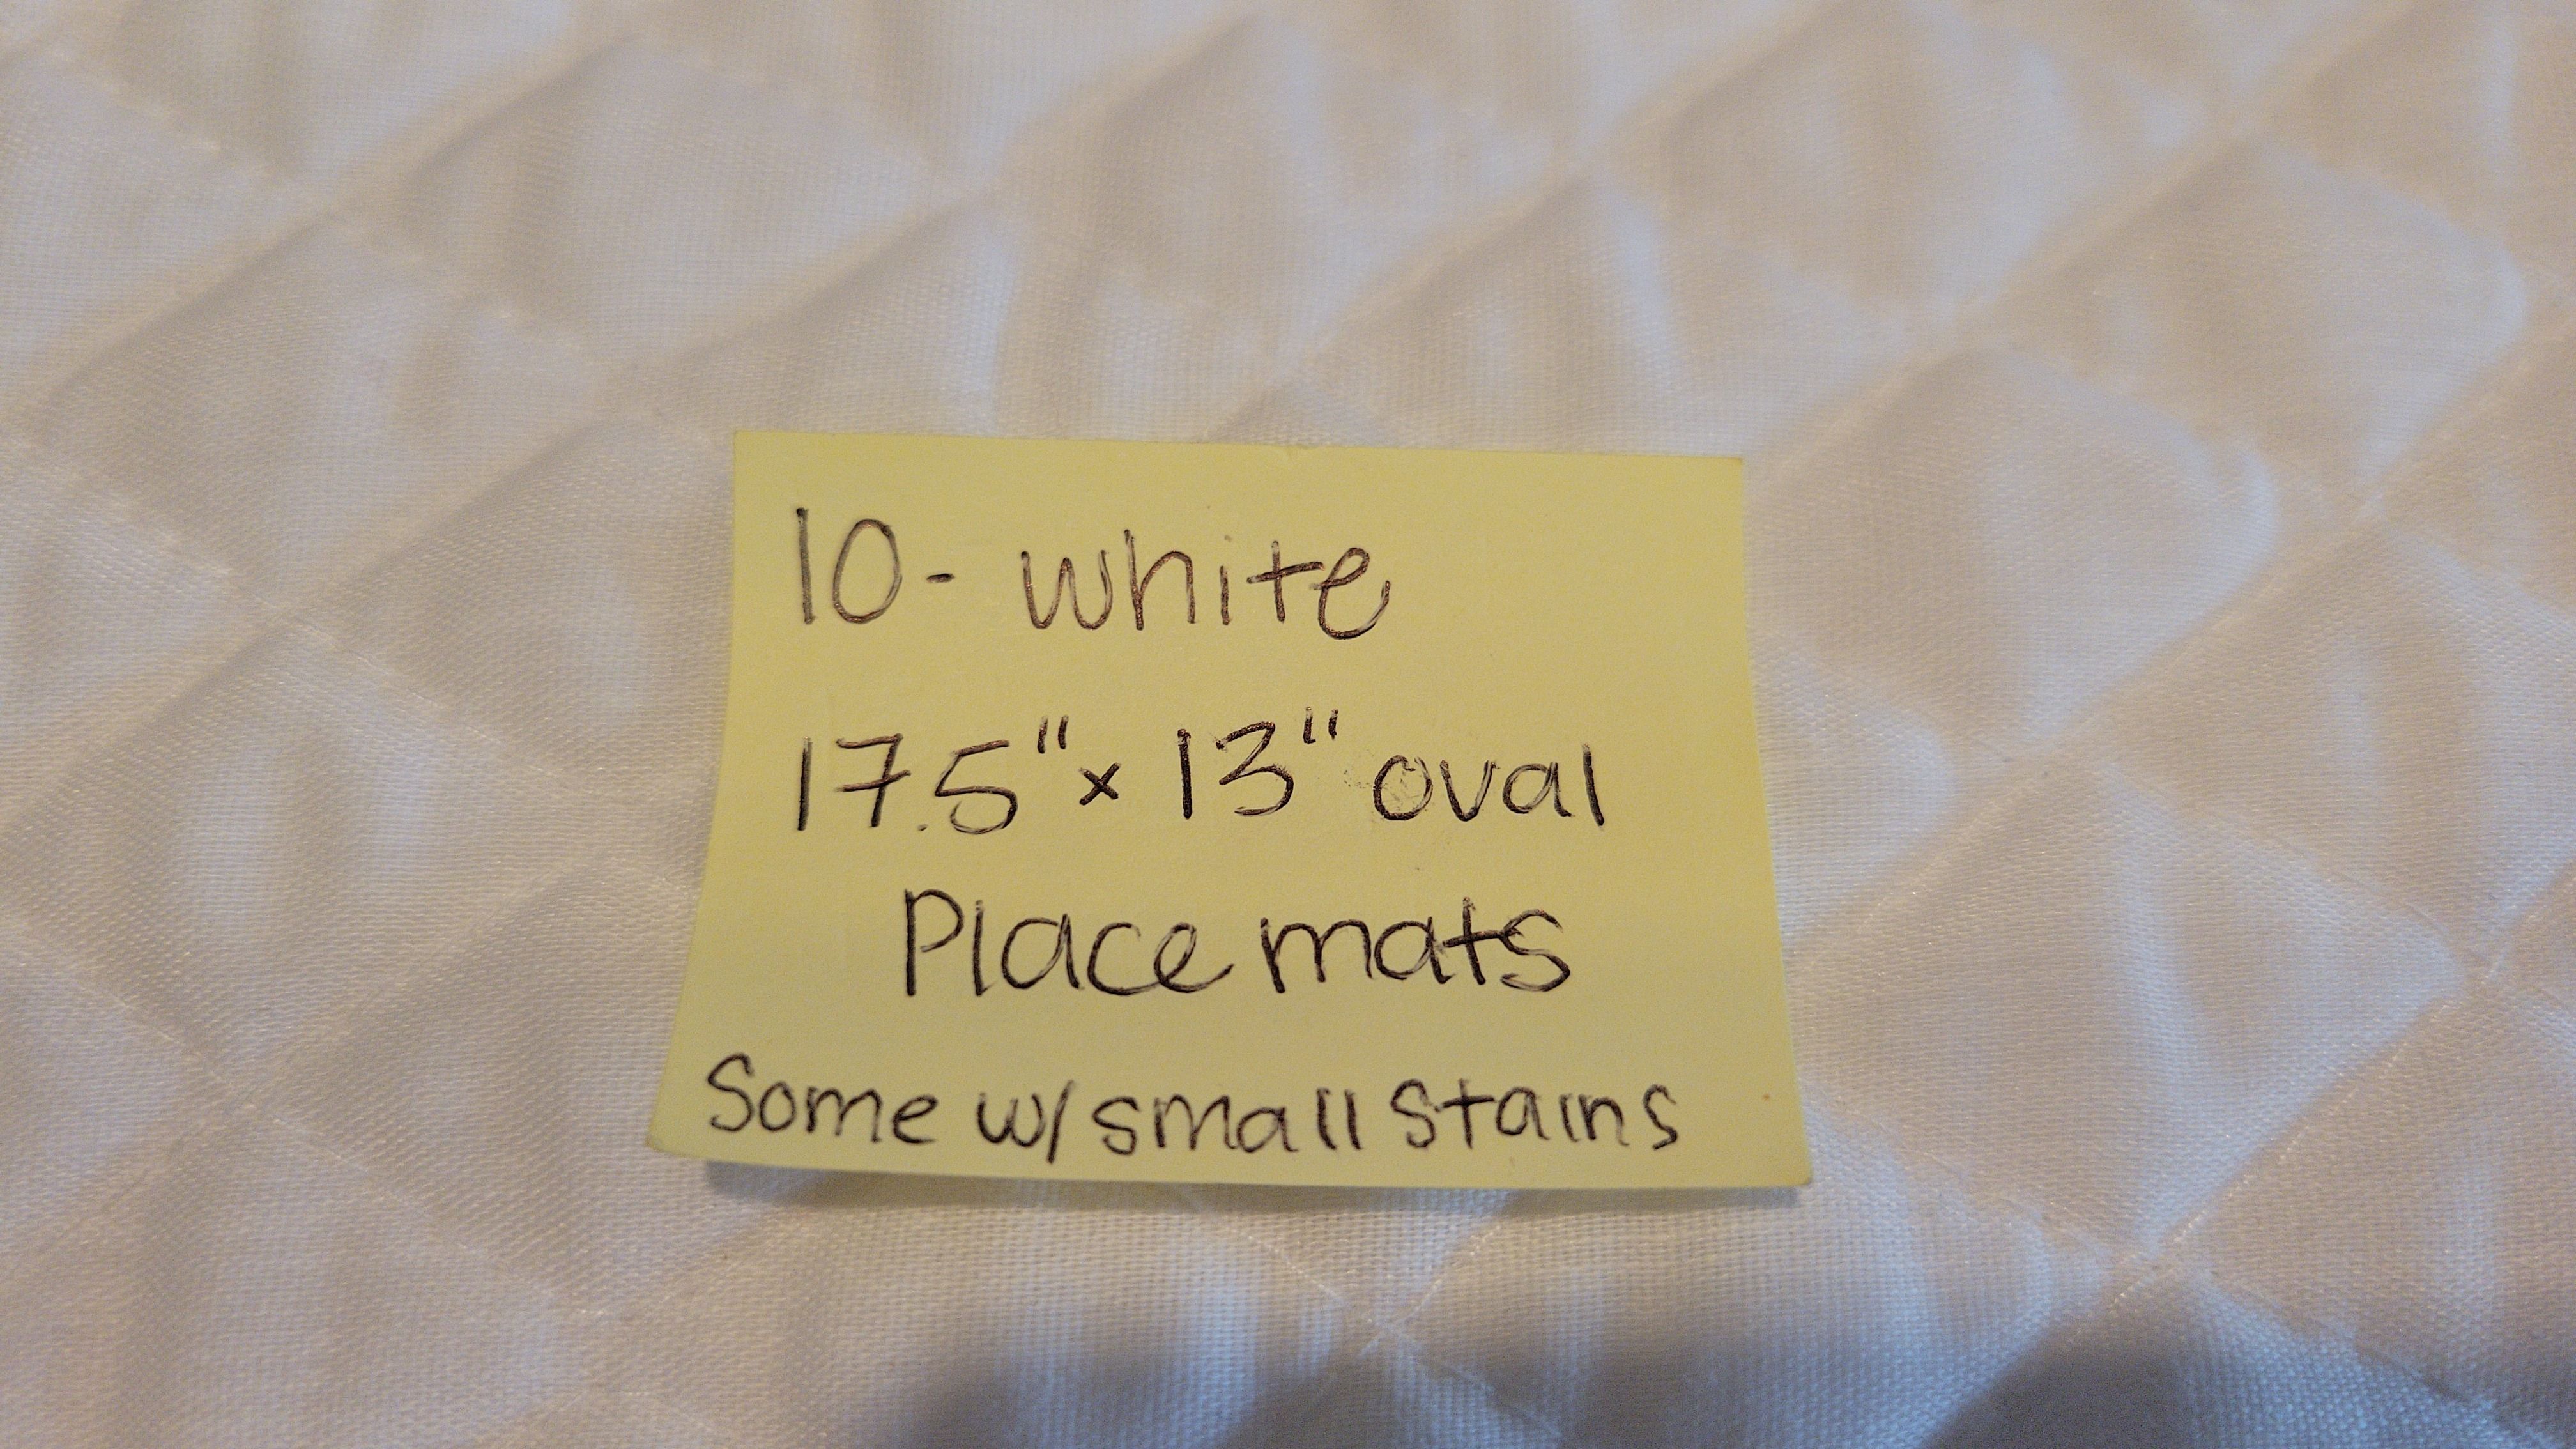 10- white
17.5" x 13" oval
Place mats
Some w/ small stains